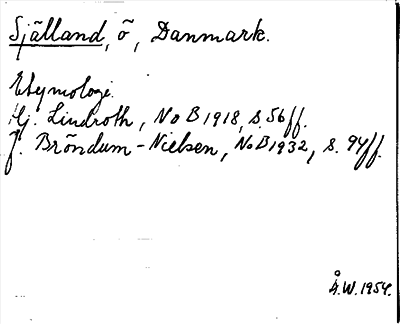 Själland, ö, Danmark.
Etymologi.
Hj. Lindroth, NoB 1918, s. 56 ff.
J. Bröndum-Nielsen, NoB 1932, s. 94 ff.
Å.W. 1954.